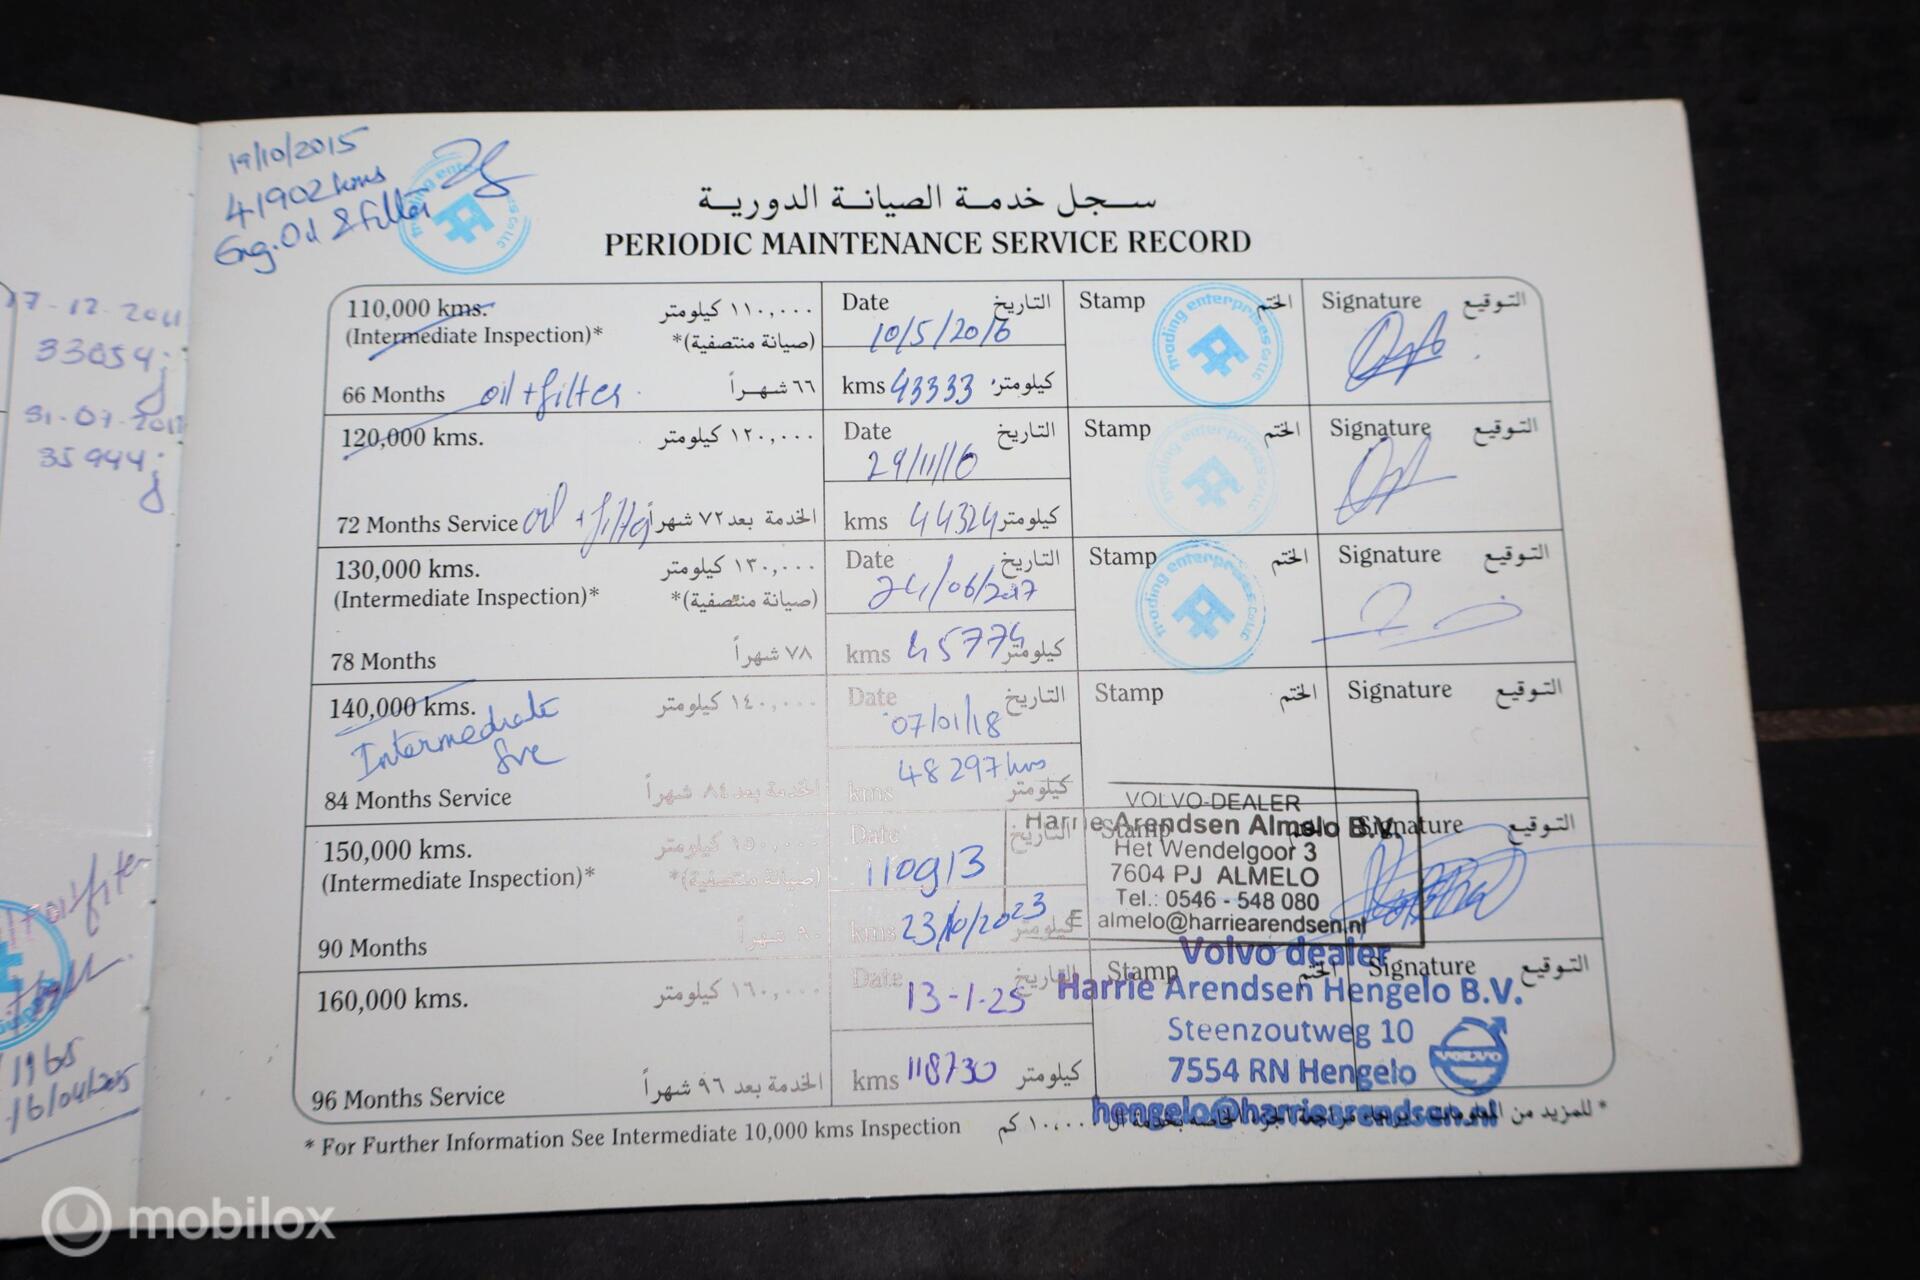 19/10/2015
41902 kms
Eng. Oil & Filter
17-12-2011
33054
31-07-201
35944
1965
16/04/2015
سجل خدمة الصيانة الدورية
PERIODIC MAINTENANCE SERVICE RECORD
110,000 kms. ١١٠,٠٠٠ كيلومتر
(Intermediate Inspection)* (صيانة منتصفية)*
66 Months oil + filter ٦٦ شهراً
Date التاريخ
10/5/2016
kms 43333 كيلومتر
Stamp الختم
trading enterprises Co LLC
Signature التوقيع
120,000 kms. ١٢٠,٠٠٠ كيلومتر
72 Months Service oil + filter الخدمة بعد ٧٢ شهراً
Date التاريخ
29/11/16
kms 44324 كيلومتر
Stamp الختم
trading enterprises Co LLC
Signature التوقيع
130,000 kms. ١٣٠,٠٠٠ كيلومتر
(Intermediate Inspection)* (صيانة منتصفية)*
78 Months ٧٨ شهراً
Date التاريخ
24/06/2017
kms 45774 كيلومتر
Stamp الختم
trading enterprises Co LLC
Signature التوقيع
140,000 kms. ١٤٠,٠٠٠ كيلومتر
Intermediate
Sve
84 Months Service الخدمة بعد ٨٤ شهراً
Date التاريخ
07/01/18
48297 kms
kms كيلومتر
Stamp الختم
Signature التوقيع
150,000 kms. ١٥٠,٠٠٠ كيلومتر
(Intermediate Inspection)* (صيانة منتصفية)*
90 Months ٩٠ شهراً
Date التاريخ
110913
kms 23/10/2023 كيلومتر
Stamp الختم
Signature التوقيع
VOLVO-DEALER
Harrie Arendsen Almelo B.V.
Het Wendelgoor 3
7604 PJ ALMELO
Tel.: 0546 - 548 080
E almelo@harriearendsen.nl
160,000 kms. ١٦٠,٠٠٠ كيلومتر
96 Months Service الخدمة بعد ٩٦ شهراً
Date التاريخ
13-1-25
kms 118730 كيلومتر
Stamp الختم
Signature التوقيع
Volvo dealer
Harrie Arendsen Hengelo B.V.
Steenzoutweg 10
7554 RN Hengelo
VOLVO
hengelo@harriearendsen.nl
* For Further Information See Intermediate 10,000 kms Inspection
* للمزيد من
mobilox